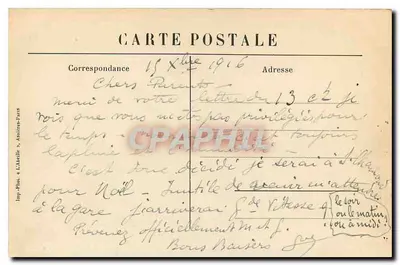 CARTE POSTALE
Correspondance
Adresse
15 Xbre 1916
Chers Parents —
merci de votre lettre du 13 ct je
vois que vous n'êtes pas privilégiés pour
le temps — toujours
la pluie
C'est donc décidé je serai à
pour Noël — Inutile de venir m'attendre
à la gare j'arriverai Gde Vitesse
le soir
ou le matin
ou à midi
Prévenez officiellement M et J.
Bons Baisers
CPAPHIL